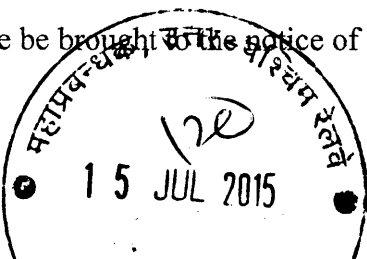 e be brought to the notice of
महाप्रबन्धक, उत्तर-पश्चिम रेलवे
15 JUL 2015